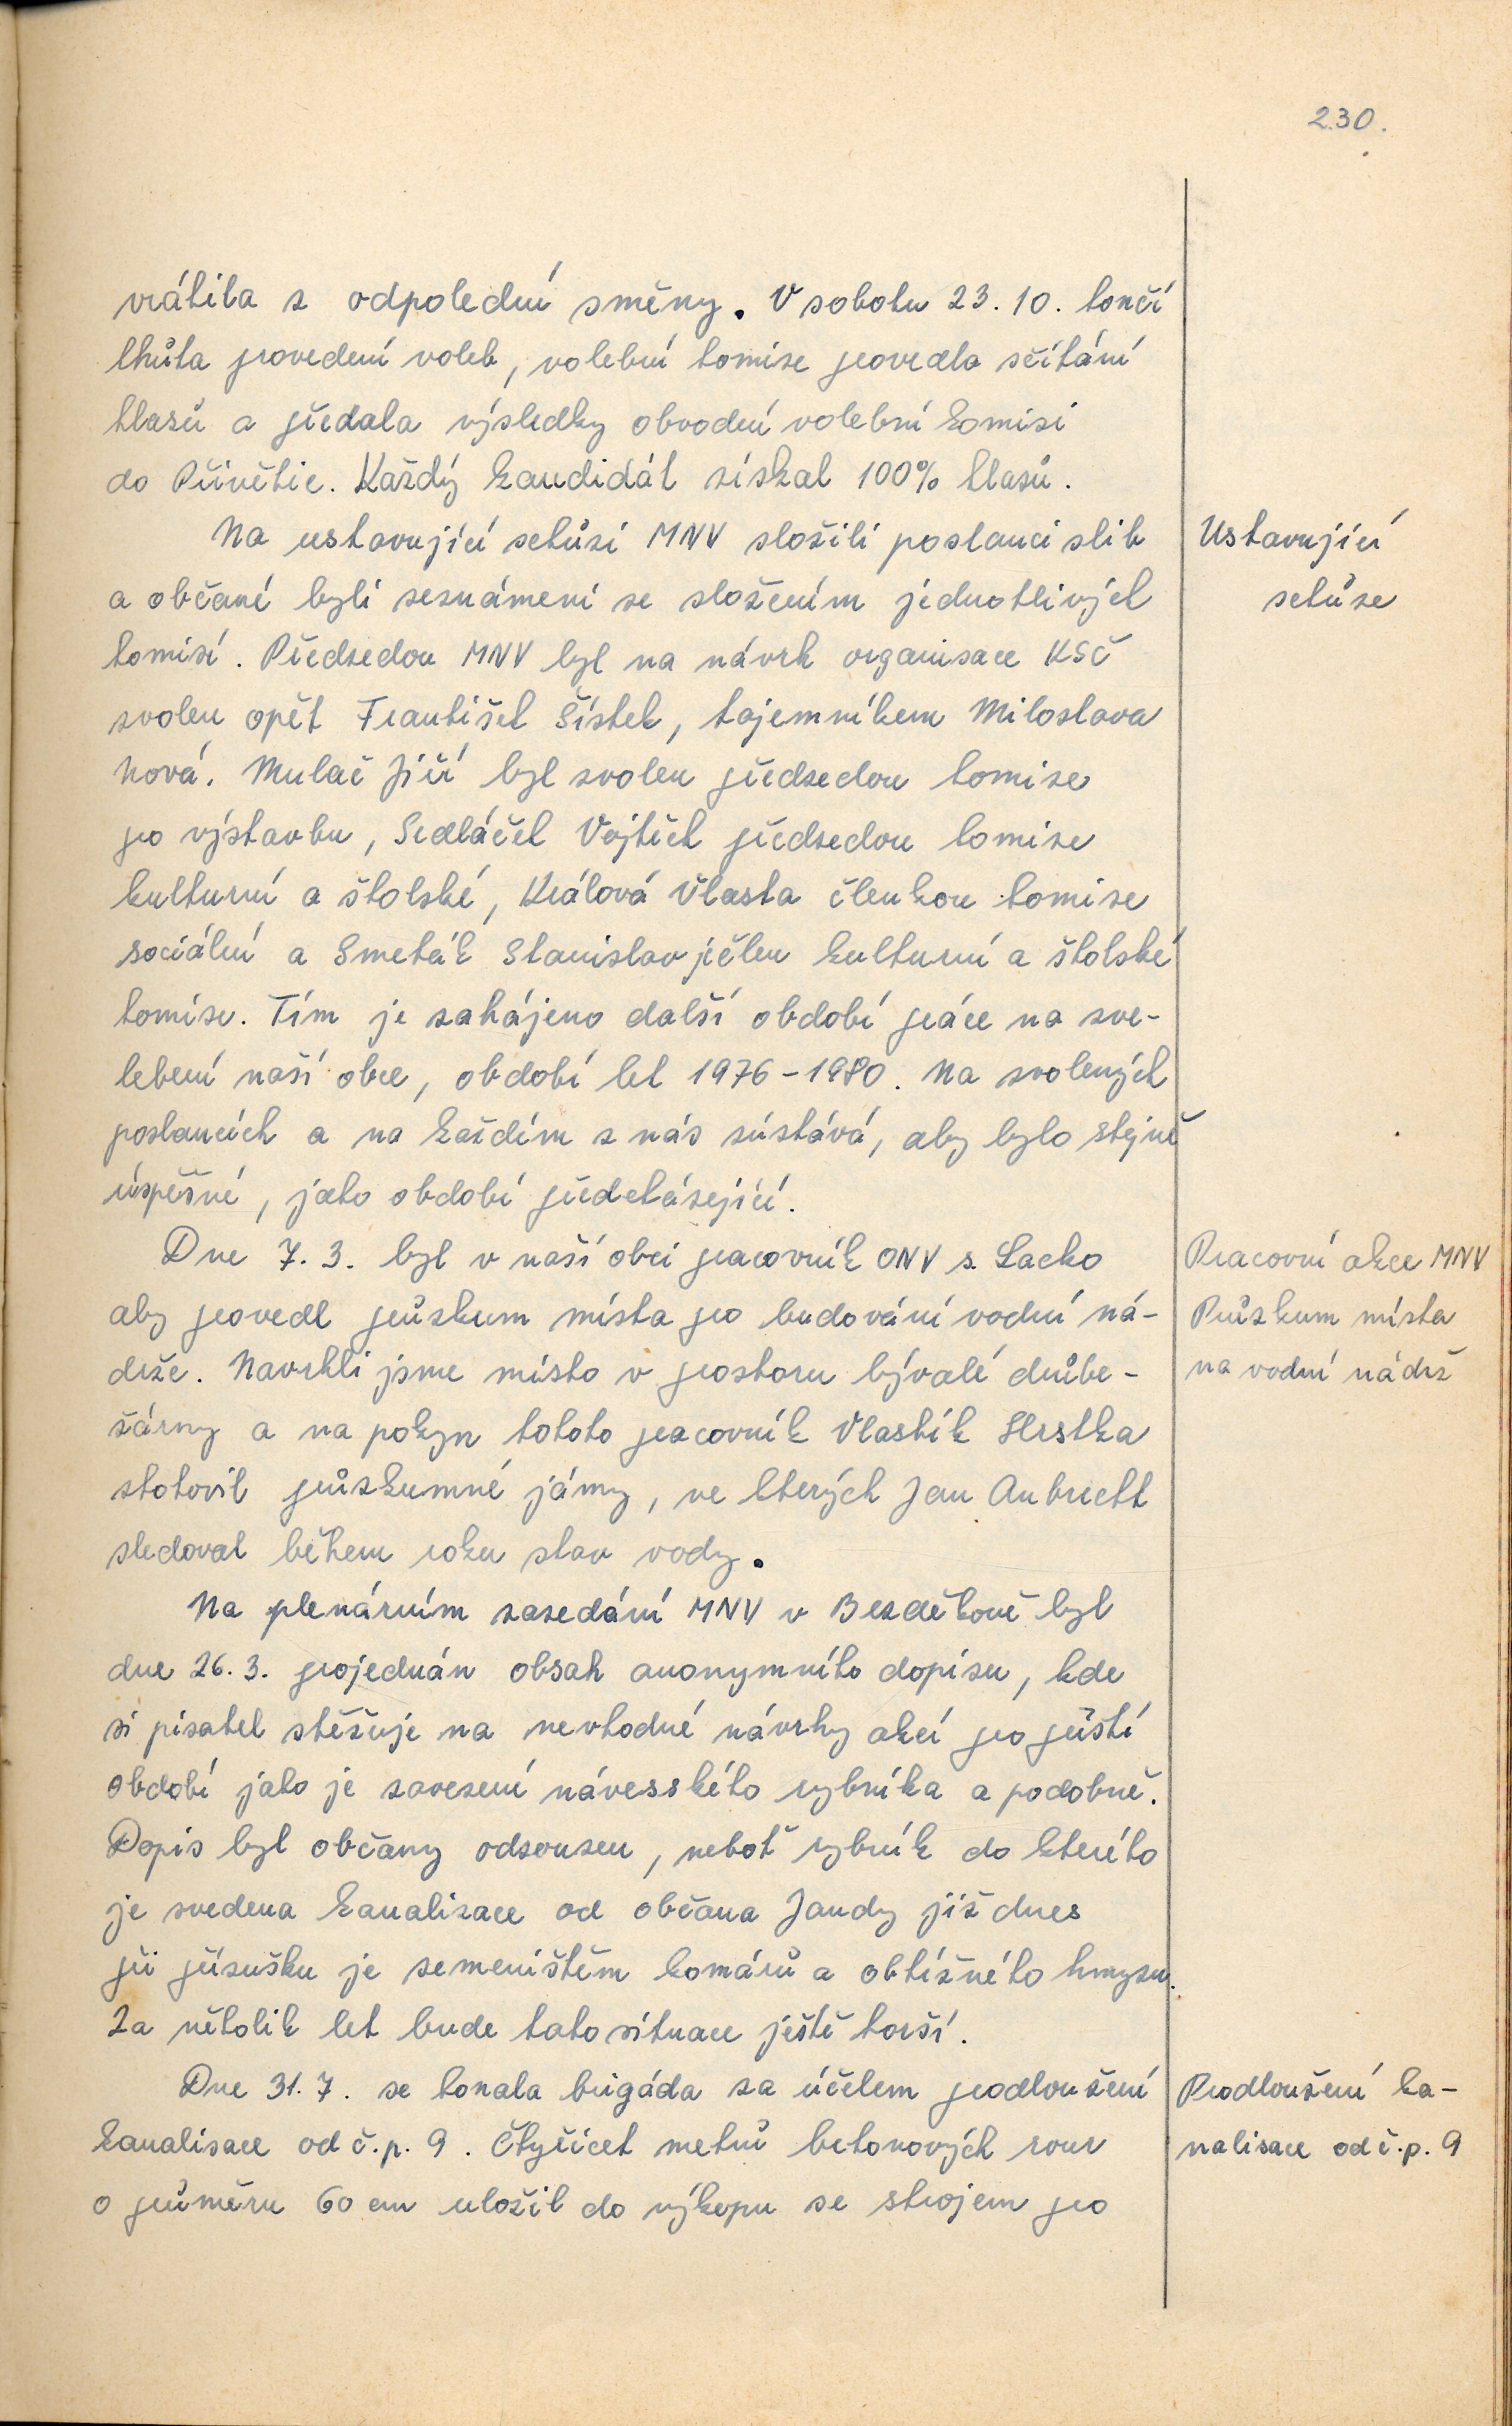 230.
vrátila z odpolední směny. V sobotu 23. 10. končí
lhůta provedení voleb, volební komise provedla sčítání
hlasů a předala výsledky obvodní volební komisi
do Přivětic. Každý kandidát získal 100% hlasů.
Na ustavující schůzi MNV složili poslanci slib
Ustavující
a občané byli seznámeni se složením jednotlivých
schůze
komisí. Předsedou MNV byl na návrh organisace KSČ
zvolen opět František Šístek, tajemníkem Miloslava
Nová. Mulač Jiří byl zvolen předsedou komise
pro výstavbu, Sedláček Vojtěch předsedou komise
kulturní a školské, Králová Vlasta členkou komise
sociální a Smeták Stanislav je člen kulturní a školské
komise. Tím je zahájeno další období práce na zve-
lebení naší obce, období let 1976-1980. Na zvolených
poslancích a na každém z nás zůstává, aby bylo stejně
úspěšné, jako období předcházející.
Dne 7. 3. byl v naší obci pracovník ONV s. Lacko
Pracovní akce MNV
aby provedl průzkum místa pro budování vodní ná-
Průzkum místa
drže. Navrhli jsme místo v prostoru bývalé drůbe-
na vodní nádrž
žárny a na pokyn tohoto pracovník Vlastík Hrstka
zhotovil průzkumné jámy, ve kterých Jan Aubrecht
sledoval během roku stav vody.
Na plenárním zasedání MNV v Bezděkově byl
dne 26. 3. projednán obsah anonymního dopisu, kde
si pisatel stěžuje na nevhodné návrhy akcí pro příští
období jako je zavezení návesského rybníka a podobně.
Dopis byl občany odsouzen, neboť rybník do kterého
je svedena kanalizace od občana Jandy již dnes
při přísušku je semeništěm komárů a obtížného hmyzu.
Za několik let bude tato situace ještě horší.
Dne 31. 7. se konala brigáda za účelem prodloužení
Prodloužení ka-
kanalisace od č.p. 9. Čtyřicet metrů betonových rour
nalisace od č.p. 9
o průměru 60 cm uložil do výkopu se strojem pro